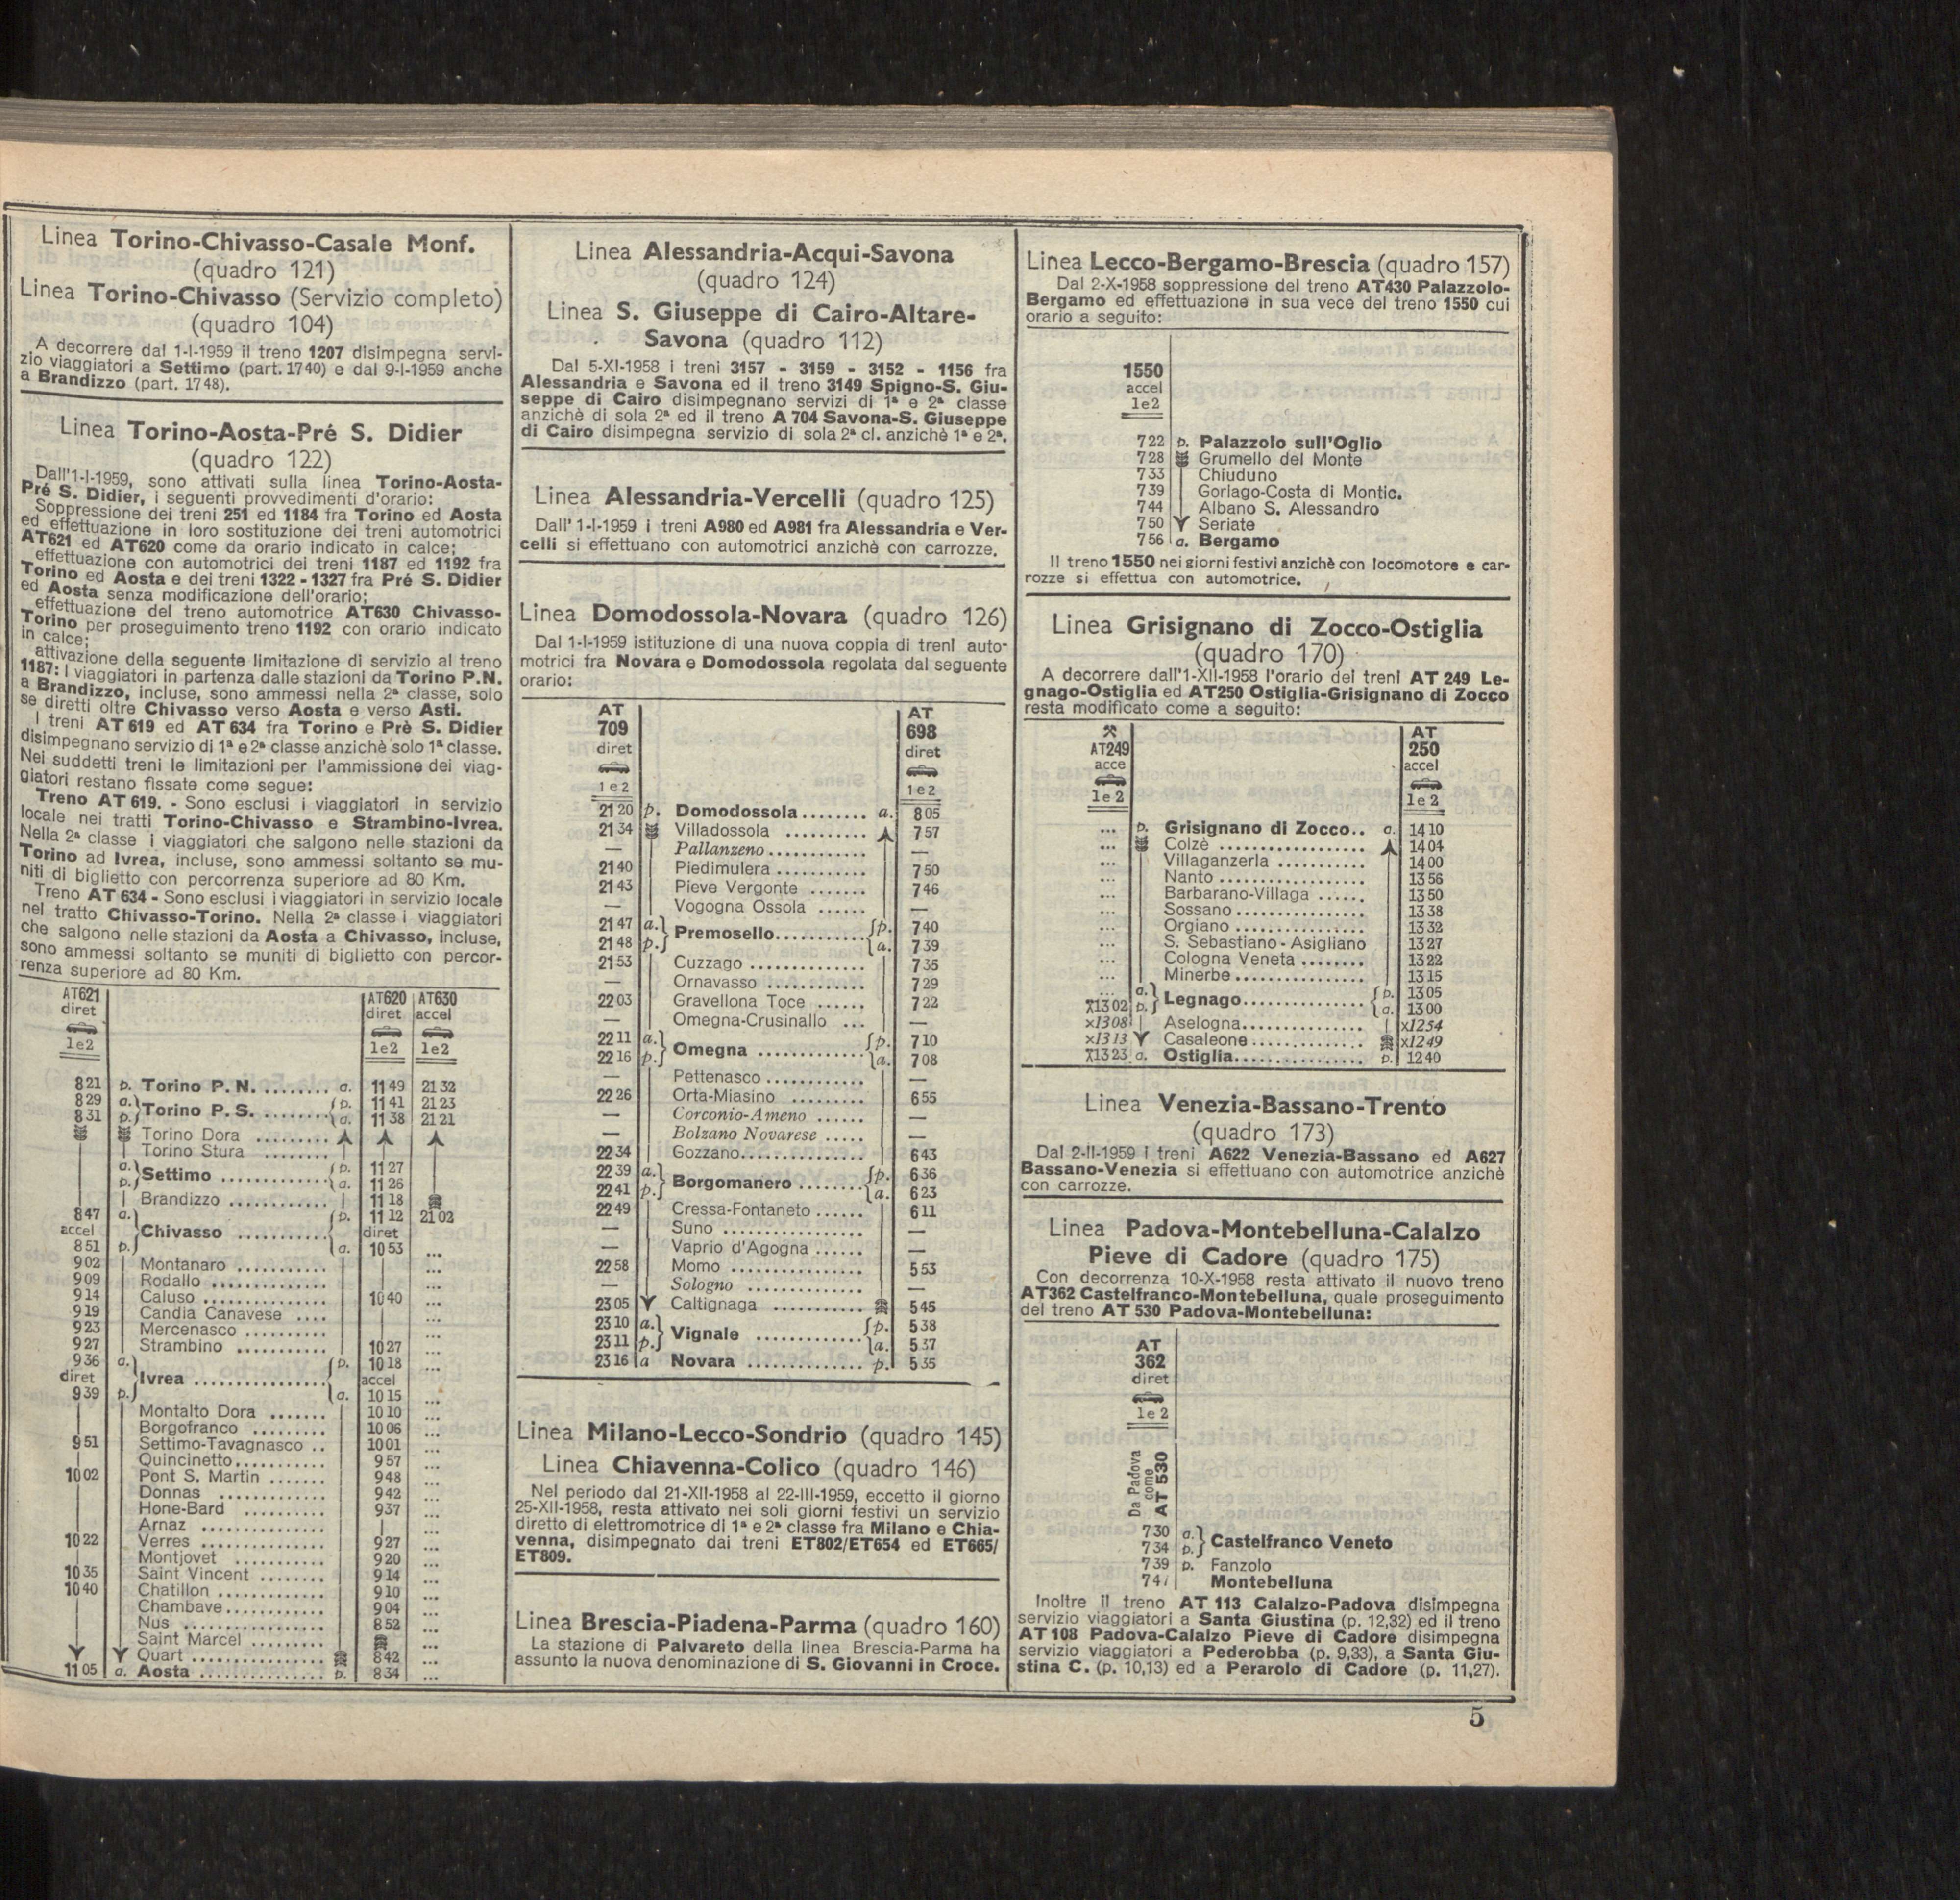 Linea Torino-Chivasso-Casale Monf.
(quadro 121)
Linea Torino-Chivasso (Servizio completo)
(quadro 104)
A decorrere dal 1-I-1959 il treno 1207 disimpegna servi-
zio viaggiatori a Settimo (part. 1740) e dal 9-I-1959 anche
a Brandizzo (part. 1748).
Linea Torino-Aosta-Pré S. Didier
(quadro 122)
Dall'1-I-1959, sono attivati sulla linea Torino-Aosta-
Pré S. Didier, i seguenti provvedimenti d'orario:
Soppressione dei treni 251 ed 1184 fra Torino ed Aosta
ed effettuazione in loro sostituzione dei treni automotrici
AT621 ed AT620 come da orario indicato in calce;
effettuazione con automotrici dei treni 1187 ed 1192 fra
Torino ed Aosta e dei treni 1322 - 1327 fra Pré S. Didier
ed Aosta senza modificazione dell'orario;
effettuazione del treno automotrice AT630 Chivasso-
Torino per proseguimento treno 1192 con orario indicato
in calce;
attivazione della seguente limitazione di servizio al treno
1187: I viaggiatori in partenza dalle stazioni da Torino P.N.
a Brandizzo, incluse, sono ammessi nella 2ª classe, solo
se diretti oltre Chivasso verso Aosta e verso Asti.
I treni AT 619 ed AT 634 fra Torino e Prè S. Didier
disimpegnano servizio di 1ª e 2ª classe anzichè solo 1ª classe.
Nei suddetti treni le limitazioni per l'ammissione dei viag-
giatori restano fissate come segue:
Treno AT 619. - Sono esclusi i viaggiatori in servizio
locale nei tratti Torino-Chivasso e Strambino-Ivrea.
Nella 2ª classe i viaggiatori che salgono nelle stazioni da
Torino ad Ivrea, incluse, sono ammessi soltanto se mu-
niti di biglietto con percorrenza superiore ad 80 Km.
Treno AT 634 - Sono esclusi i viaggiatori in servizio locale
nel tratto Chivasso-Torino. Nella 2ª classe i viaggiatori
che salgono nelle stazioni da Aosta a Chivasso, incluse,
sono ammessi soltanto se muniti di biglietto con percor-
renza superiore ad 80 Km.
AT621 AT620 AT630
diret diret accel
1e2 1e2 1e2
8 21 p. Torino P. N. ........ a. 11 49 21 32
8 29 a. Torino P. S. ........ p. 11 41 21 23
8 31 p. a. 11 38 21 21
Torino Dora .........
Torino Stura ........
a. Settimo ............ p. 11 27
p. a. 11 26
Brandizzo ............ 11 18
8 47 a. Chivasso ........... p. 11 12 21 02
accel diret
8 51 p. a. 10 53 ...
9 02 Montanaro ........... ...
9 09 Rodallo .............. ...
9 14 Caluso ............... 10 40 ...
9 19 Candia Canavese .... ...
9 23 Mercenasco .......... ...
9 27 Strambino ........... 10 27 ...
9 36 a. Ivrea ................ p. 10 18 ...
diret accel
9 39 p. a. 10 15 ...
Montalto Dora ....... 10 10 ...
Borgofranco ......... 10 06 ...
9 51 Settimo-Tavagnasco .. 10 01 ...
Quincinetto........... 9 57 ...
10 02 Pont S. Martin ....... 9 48 ...
Donnas ............. 9 42 ...
Hone-Bard .......... 9 37 ...
Arnaz ............... ...
10 22 Verres ............... 9 27 ...
Montjovet ........... 9 20 ...
10 35 Saint Vincent ........ 9 14 ...
10 40 Chatillon ............. 9 10 ...
Chambave............ 9 04 ...
Nus ................. 8 52 ...
Saint Marcel ......... ...
Quart ................ 8 42 ...
11 05 a. Aosta ............... p. 8 34 ...
Linea Alessandria-Acqui-Savona
(quadro 124)
Linea S. Giuseppe di Cairo-Altare-
Savona (quadro 112)
Dal 5-XI-1958 i treni 3157 - 3159 - 3152 - 1156 fra
Alessandria e Savona ed il treno 3149 Spigno-S. Giu-
seppe di Cairo disimpegnano servizi di 1ª e 2ª classe
anzichè di sola 2ª ed il treno A 704 Savona-S. Giuseppe
di Cairo disimpegna servizio di sola 2ª cl. anzichè 1ª e 2ª.
Linea Alessandria-Vercelli (quadro 125)
Dall' 1-I-1959 i treni A980 ed A981 fra Alessandria e Ver-
celli si effettuano con automotrici anzichè con carrozze.
Linea Domodossola-Novara (quadro 126)
Dal 1-I-1959 istituzione di una nuova coppia di treni auto-
motrici fra Novara e Domodossola regolata dal seguente
orario:
AT AT
709 698
diret diret
1e2 1e2
21 20 p. Domodossola........ a. 8 05
21 34 Villadossola .......... 7 57
— Pallanzeno ............ —
21 40 Piedimulera ........... 7 50
21 43 Pieve Vergonte ....... 7 46
— Vogogna Ossola ...... —
21 47 a. Premosello........... p. 7 40
21 48 p. a. 7 39
21 53 Cuzzago .............. 7 35
— Ornavasso ............ 7 29
22 03 Gravellona Toce ...... 7 22
— Omegna-Crusinallo ... —
22 11 a. Omegna ............ p. 7 10
22 16 p. a. 7 08
— Pettenasco ............ —
22 26 Orta-Miasino ......... 6 55
— Corconio-Ameno ...... —
— Bolzano Novarese ..... —
22 34 Gozzano............... 6 43
22 39 a. Borgomanero ........ p. 6 36
22 41 p. a. 6 23
22 49 Cressa-Fontaneto ...... 6 11
— Suno ................. —
— Vaprio d'Agogna ...... —
22 58 Momo ................ 5 53
— Sologno .............. —
23 05 Caltignaga ........... 5 45
23 10 a. Vignale ............. p. 5 38
23 11 p. a. 5 37
23 16 a Novara .............. p. 5 35
Linea Milano-Lecco-Sondrio (quadro 145)
Linea Chiavenna-Colico (quadro 146)
Nel periodo dal 21-XII-1958 al 22-III-1959, eccetto il giorno
25-XII-1958, resta attivato nei soli giorni festivi un servizio
diretto di elettromotrice di 1ª e 2ª classe fra Milano e Chia-
venna, disimpegnato dai treni ET802/ET654 ed ET665/
ET809.
Linea Brescia-Piadena-Parma (quadro 160)
La stazione di Palvareto della linea Brescia-Parma ha
assunto la nuova denominazione di S. Giovanni in Croce.
Linea Lecco-Bergamo-Brescia (quadro 157)
Dal 2-X-1958 soppressione del treno AT430 Palazzolo-
Bergamo ed effettuazione in sua vece del treno 1550 cui
orario a seguito:
1550
accel
1e2
7 22 p. Palazzolo sull'Oglio
7 28 Grumello del Monte
7 33 Chiuduno
7 39 Gorlago-Costa di Montic.
7 44 Albano S. Alessandro
7 50 Seriate
7 56 a. Bergamo
Il treno 1550 nei giorni festivi anzichè con locomotore e car-
rozze si effettua con automotrice.
Linea Grisignano di Zocco-Ostiglia
(quadro 170)
A decorrere dall'1-XII-1958 l'orario dei treni AT 249 Le-
gnago-Ostiglia ed AT250 Ostiglia-Grisignano di Zocco
resta modificato come a seguito:
AT
AT249 250
acce accel
1e2 1e2
... p. Grisignano di Zocco.. a. 14 10
... Colzè ................. 14 04
... Villaganzerla ........... 14 00
... Nanto .................. 13 56
... Barbarano-Villaga ...... 13 50
... Sossano................ 13 38
... Orgiano ................ 13 32
... S. Sebastiano - Asigliano 13 27
... Cologna Veneta ........ 13 22
... Minerbe................ 13 15
... a. Legnago............... p. 13 05
x13 02 p. a. 13 00
x13 08 Aselogna............... x12 54
x13 13 Casaleone.............. x12 49
x13 23 a. Ostiglia................ p. 12 40
Linea Venezia-Bassano-Trento
(quadro 173)
Dal 2-II-1959 i treni A622 Venezia-Bassano ed A627
Bassano-Venezia si effettuano con automotrice anzichè
con carrozze.
Linea Padova-Montebelluna-Calalzo
Pieve di Cadore (quadro 175)
Con decorrenza 10-X-1958 resta attivato il nuovo treno
AT362 Castelfranco-Montebelluna, quale proseguimento
del treno AT 530 Padova-Montebelluna:
AT
362
diret
1e2
Da Padova
come
AT 530
7 30 a. Castelfranco Veneto
7 34 p.
7 39 p. Fanzolo
Montebelluna
Inoltre il treno AT 113 Calalzo-Padova disimpegna
servizio viaggiatori a Santa Giustina (p. 12,32) ed il treno
AT 108 Padova-Calalzo Pieve di Cadore disimpegna
servizio viaggiatori a Pederobba (p. 9,33), a Santa Giu-
stina C. (p. 10,13) ed a Perarolo di Cadore (p. 11,27).
5